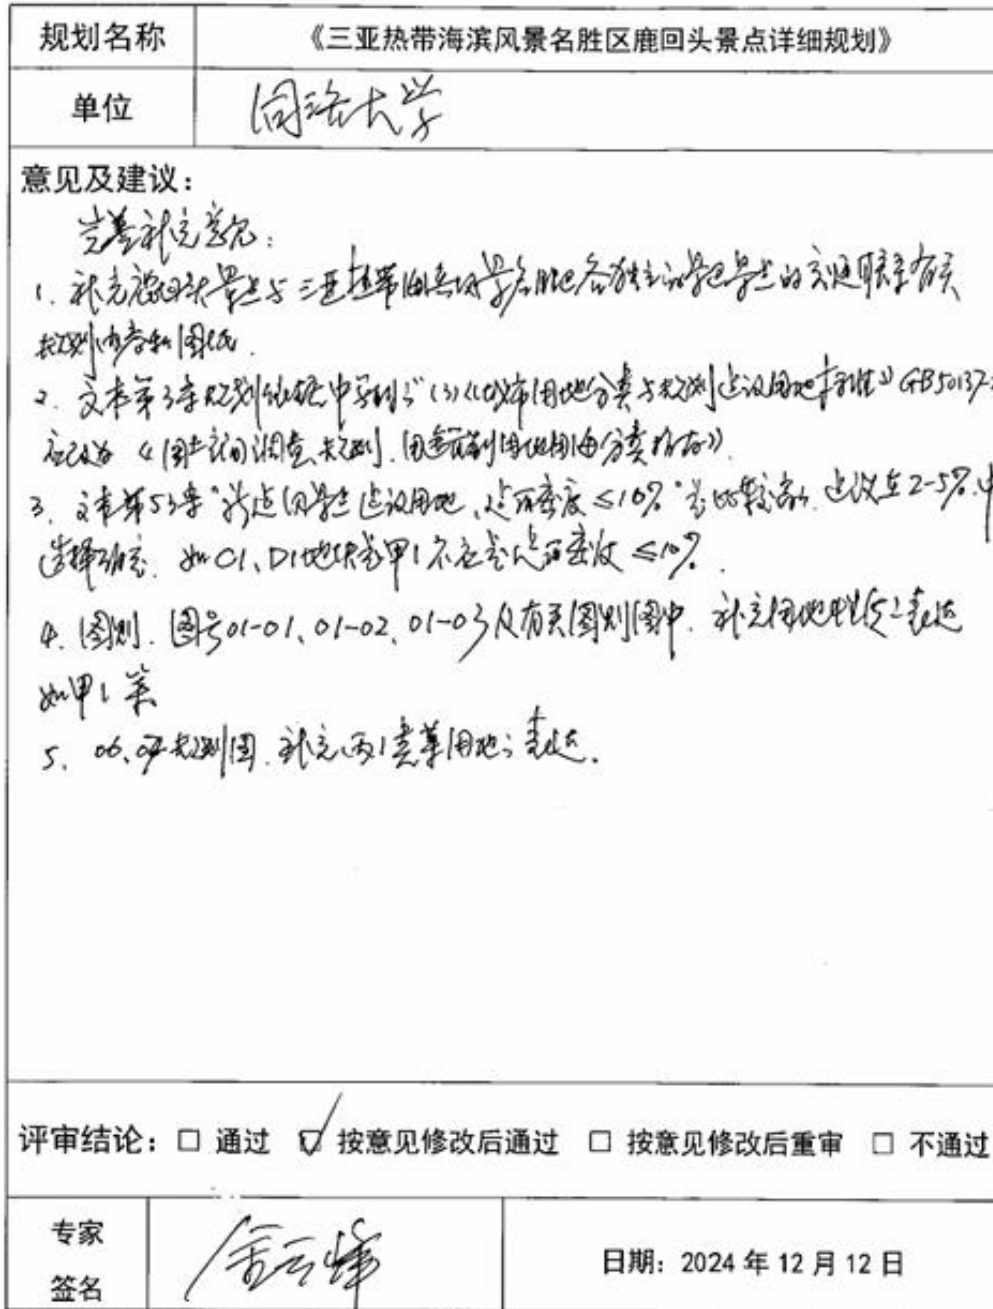 规划名称 《三亚热带海滨风景名胜区鹿回头景点详细规划》
单位 同济大学
意见及建议：
完善补充意见：
1. 补充鹿回头景点与三亚热带海滨风景名胜区各独立的景区景点的交通联系有关
规划内容和图纸.
2. 文本第3条规划依据中写到“(3)《城市用地分类与规划建设用地标准》GB50137-
应改为《国土空间调查、规划、用途管制用地用海分类指南》.
3. 文本第53条“新建类景点建设用地，建筑密度≤10%” 比较高. 建议在2-5%.中
选择确定. 如C1、D1地块 甲1不应 建筑密度≤10%.
4. 图则. 图号01-01、01-02、01-03及有关图则图中. 补充用地性质之表达
如甲1类
5. 06、07规划图. 补充丙1类 用地之表达.
评审结论：□ 通过 ☑ 按意见修改后通过 □ 按意见修改后重审 □ 不通过
专家 金云峰 日期：2024 年 12 月 12 日
签名